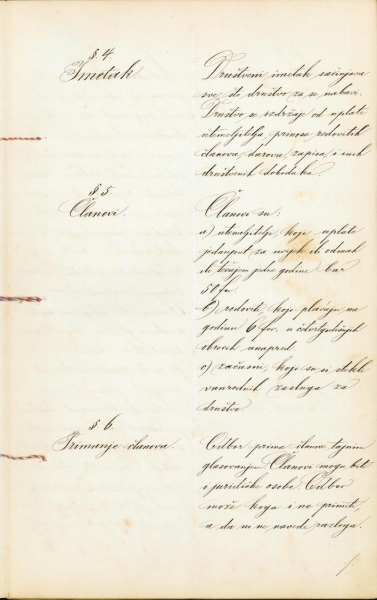 § 4
Imetak
Društveni imetak sačinjava
sve, što društvo za se nabavi.
Društvo se uzdržaje od uplate
utemeljitelja, prinosa redovitih
članova, darova, zapisa i inih
društvenih dohodaka.
§ 5
Članovi.
Članovi su:
a) utemeljitelji, koji uplate
jedanput za uvijek ili odmah
ili tečajem jedne godine bar
50 for.
b) redoviti, koji plaćaju na
godinu 6 for. u četvrtgodišnjih
obrocih unapred.
c) začasni, koji su si stekli
vanrednih zasluga za
društvo
§ 6.
Primanje članova.
Odbor prima članove tajnim
glasovanjem. Članovi mogu biti
i juridičke osobe. Odbor
može koga i ne primiti,
a da ni ne navede razloga.